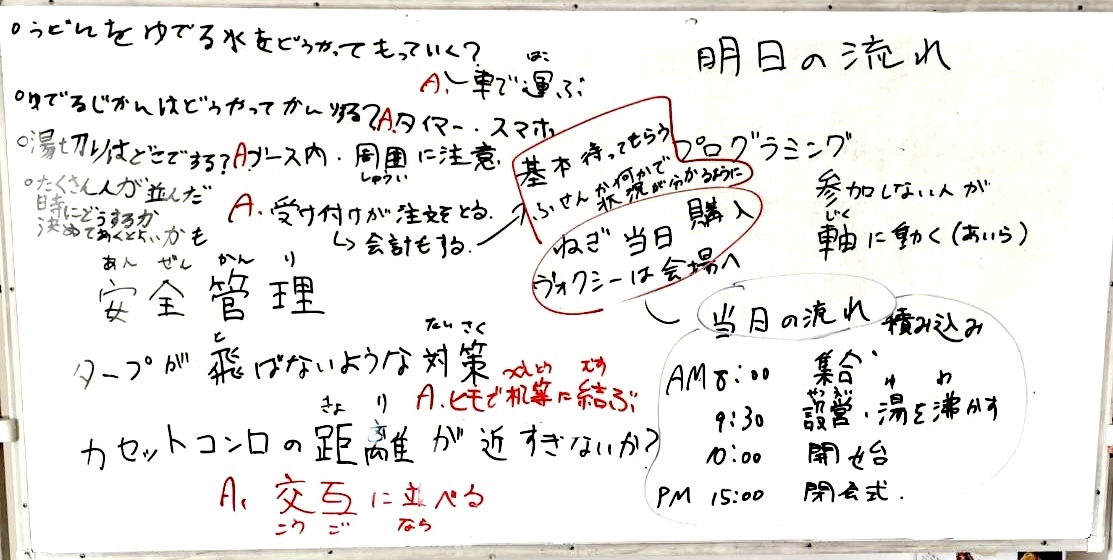 ○うどんをゆでる水をどうやってもっていく?
A. 車で運ぶ
はこ
○ゆでるじかんはどうやってかんりする?
A.タイマー・スマホ
○湯切りはどこでする?
A.ブース内・周囲に注意
しゅうい
○たくさん人が並んだ
時にどうするか
決めておくといいかも
A. 受け付けが注文をとる.
↳会計もする.
基本待ってもらう
ふせんか何かで
状況が分かるように
ねぎ 当日 購入
ヴォクシーは会場へ
あん ぜん かん り
安全管理
と たい さく
タープが飛ばないような対策
つくえとう むす
A.ヒモで机等に結ぶ
きょ り
カセットコンロの距離が近すぎないか?
A. 交互に並べる
こう ご なら
明日の流れ
プログラミング
参加しない人が
じく
軸に動く(あいら)
当日の流れ
積み込み
AM 8:00 集合・
せつえい ゆ わ
9:30 設営・湯を沸かす
10:00 開始
PM 15:00 閉会式.